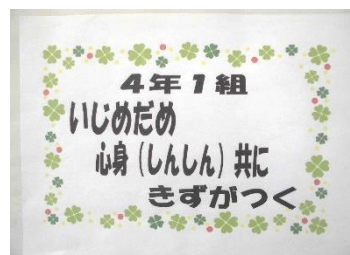 4年1組
いじめだめ
心身（しんしん）共に
きずがつく